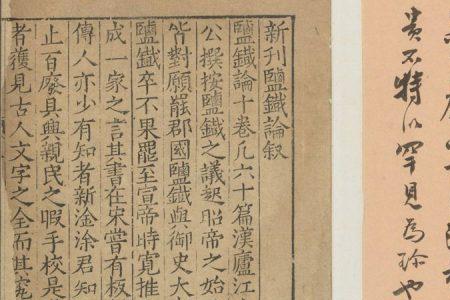 貴不特以罕見為珍也
新刊鹽鐵論叙
鹽鐵論十卷凡六十篇漢廬江
公撰按鹽鐵之議起昭帝之始
皆對願罷郡國鹽鐵與御史大
鹽鐵卒不果罷至宣帝時寬推
成一家之言其書在宋嘗有板
傳人亦少有知者新淦涂君知
止百廢具興親民之暇手校是
者獲見古人文字之全而其究